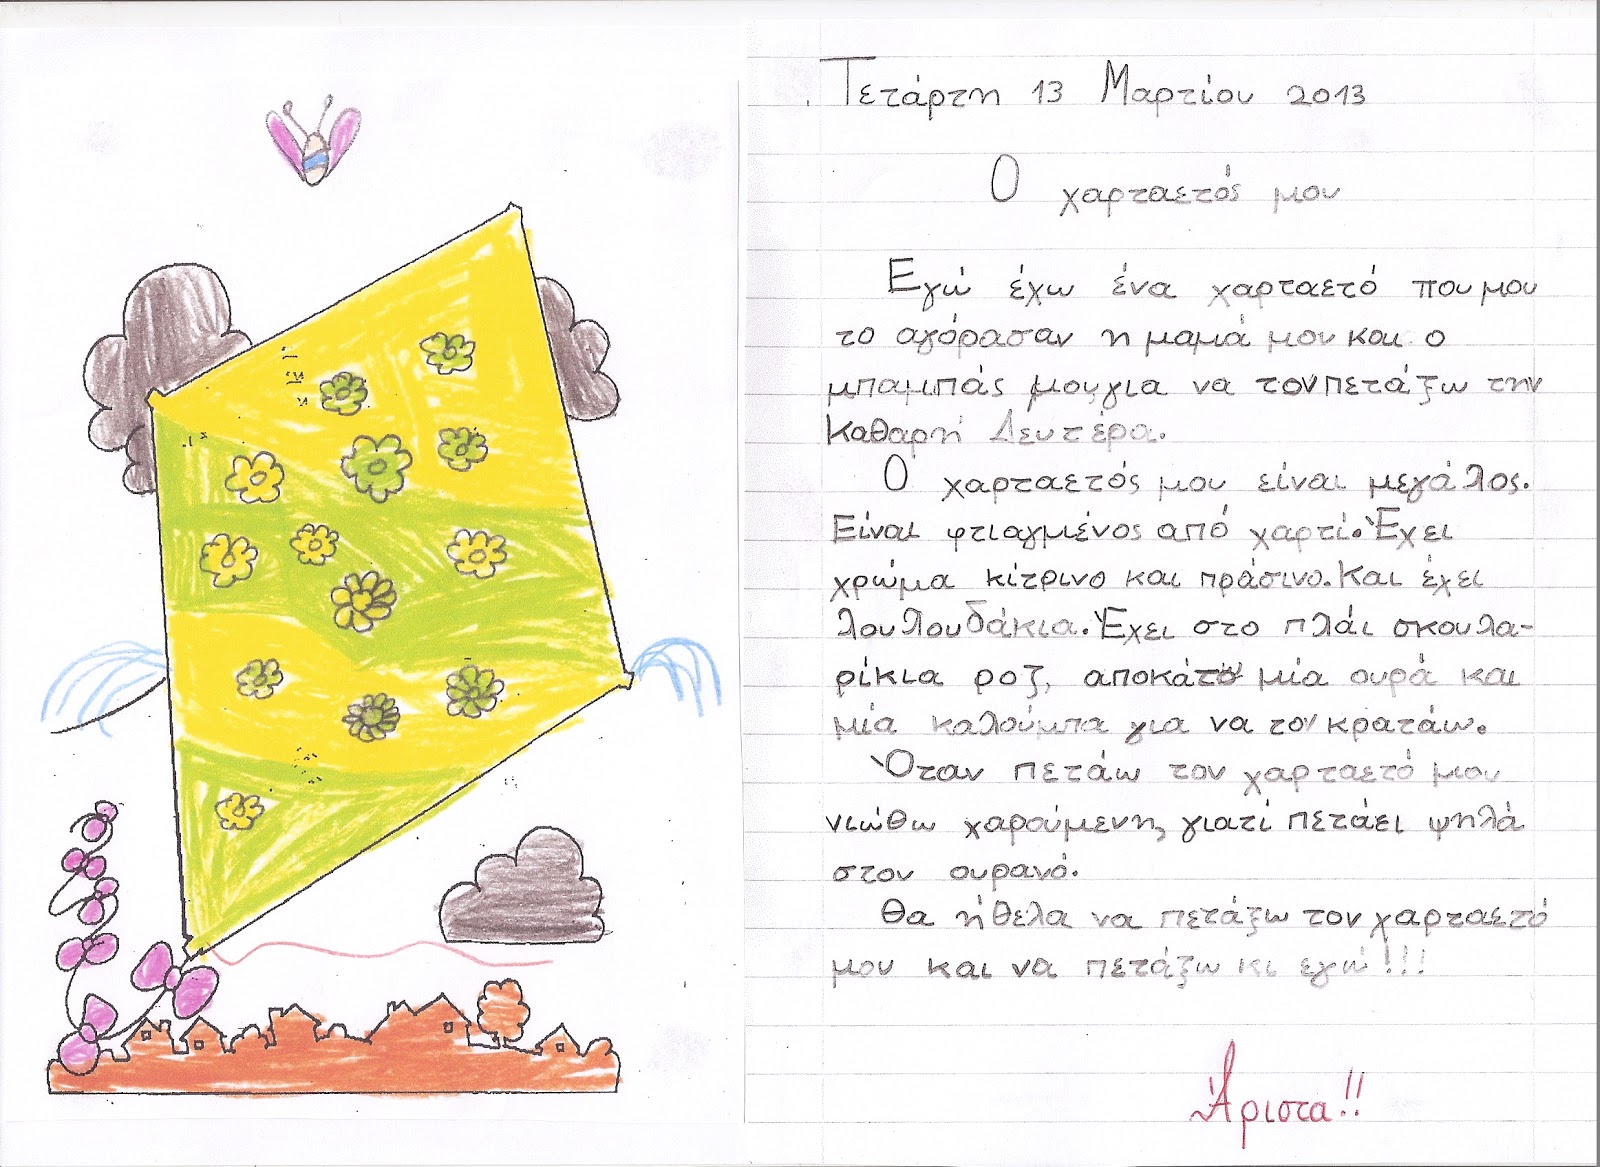 Τετάρτη 13 Μαρτίου 2013
Ο χαρταετός μου
Εγώ έχω ένα χαρταετό που μου
το αγόρασαν η μαμά μου και ο
μπαμπάς μου, για να τον πετάξω την
Καθαρή Δευτέρα.
Ο χαρταετός μου είναι μεγάλος.
Είναι φτιαγμένος από χαρτί. Έχει
χρώμα κίτρινο και πράσινο. Και έχει
λουλουδάκια. Έχει στο πλάι σκουλα-
ρίκια ροζ, αποκάτω μία ουρά και
μία καλούμπα για να τον κρατάω.
Όταν πετάω τον χαρταετό μου
νιώθω χαρούμενη, γιατί πετάει ψηλά
στον ουρανό.
Θα ήθελα να πετάξω τον χαρταετό
μου και να πετάξω κι εγώ!!!
Άριστα!!